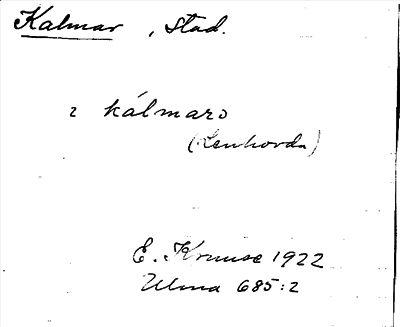 Kalmar, Stad.
kálmarɔ
(Lenhovda)
E. Kruuse 1922
Ulma 685:2